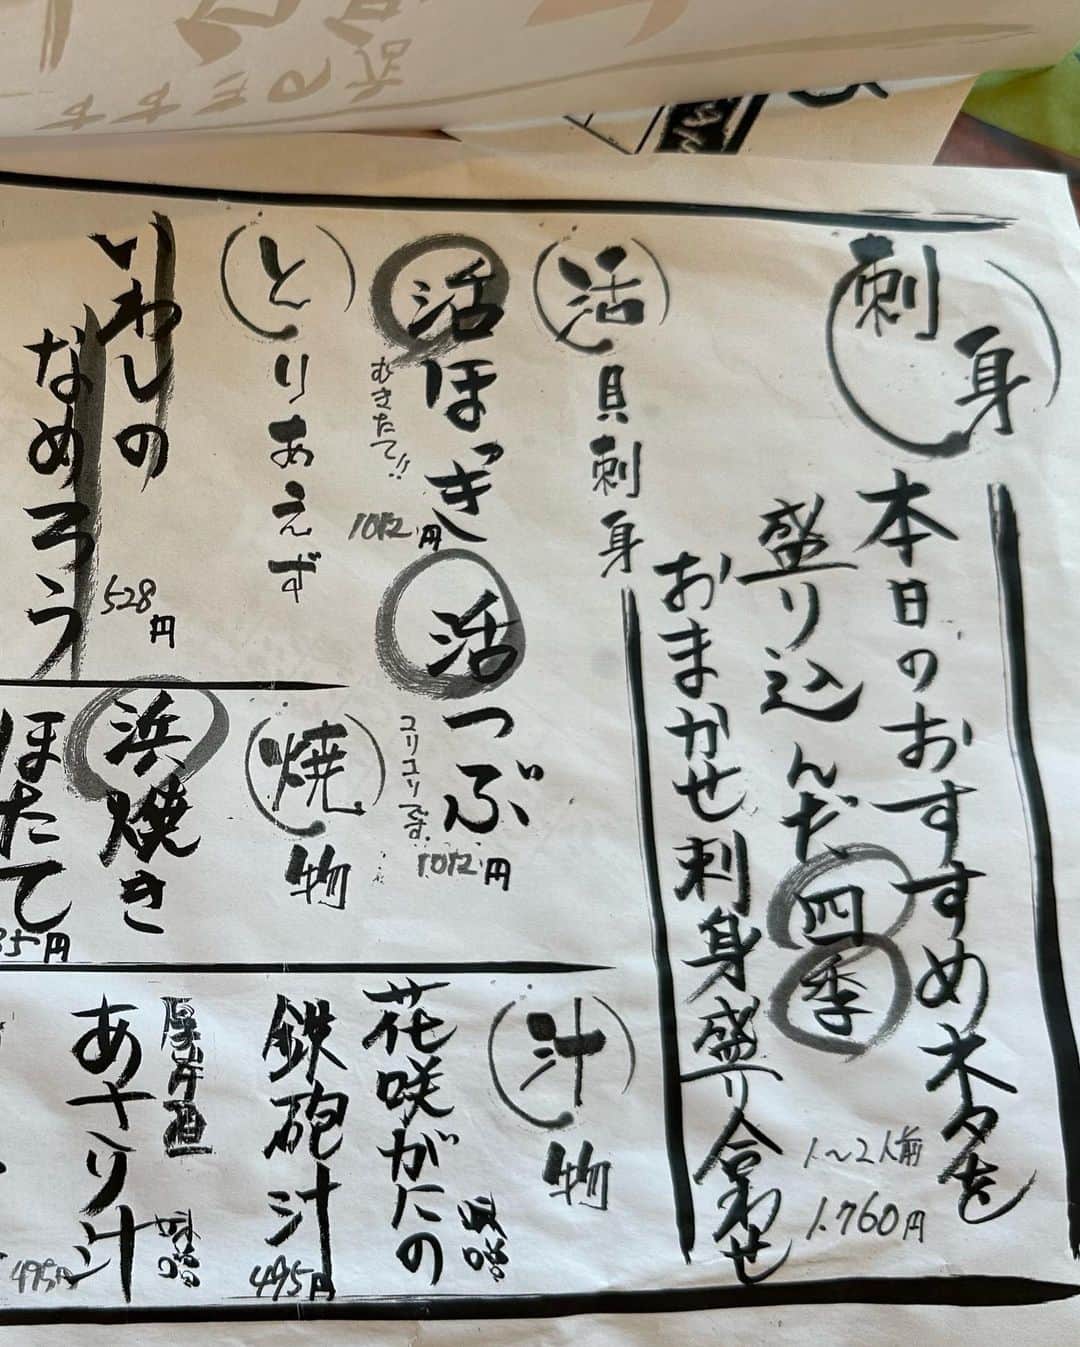 刺身
本日のおすすめネタを
盛り込んだ、四季
おまかせ刺身盛り合わせ
1~2人前
1.760円
活貝刺身
活ほっき
むきたて!!
1012円
活つぶ
コリコリです。
1012円
とりあえず
いわしの
なめろう
528円
焼物
浜焼き
ほたて
汁物
花咲がにの
鉄砲汁
味噌
495円
厚岸産
あさり汁
味噌
495円